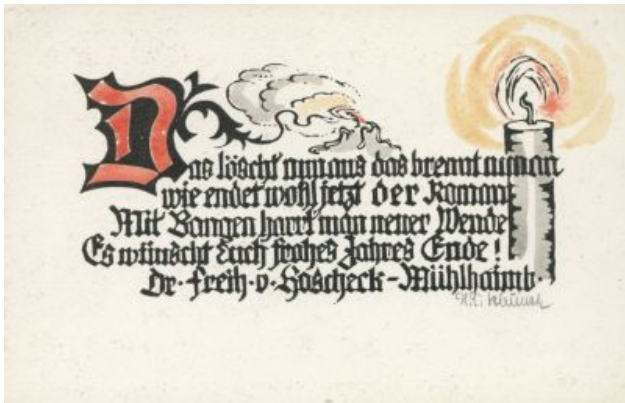 Das löscht nun aus das brennt nun an
wie endet wohl jetzt der Roman
Mit Bangen harrt man neuer Wende
Es wünscht Euch frohes Jahres Ende!
Dr. Freih. v. Hoscheck-Mühlhaimb.